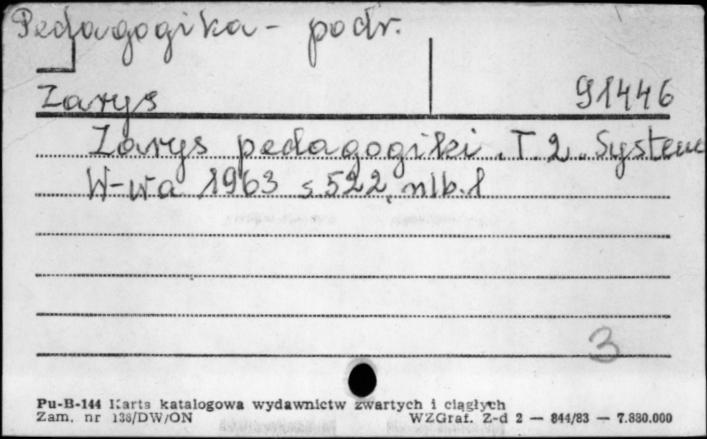 Pedagogika - podr.
Zarys 91446
Zarys pedagogiki. T. 2. System
W-wa 1963 s 522, nlb. 1
3
Pu-B-144 Karta katalogowa wydawnictw zwartych i ciągłych
Zam. nr 138/DW/ON WZGraf. Z-d 2 — 844/83 — 7.830.000